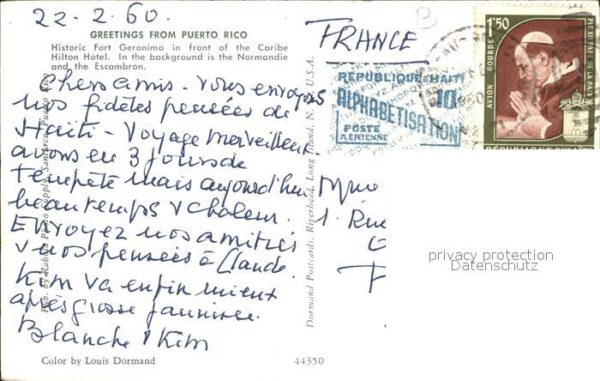 22.2.60.
GREETINGS FROM PUERTO RICO
Historic Fort Geronimo in front of the Caribe
Hilton Hotel. In the background is the Normandie
and the Escambron.
Chers amis - vous envoyons
nos fidèles pensées de
Haïti - Voyage merveilleux
avons eu 3 jours de
tempête mais aujourd'hui
beau temps & chaleur.
Envoyons nos amitiés
& nos pensées à Claude.
Kim va enfin mieux
après grosse jaunisse.
Blanche & Kim
Color by Louis Dormand
44350
Dormand Postcards, Riverhead, Long Island, N. Y., U.S.A.
FRANCE
B
REPUBLIQUE HAITI
10c
ALPHABETISATION
POSTE
AERIENNE
1.50
AVION GOURDE
1. Rue
F
privacy protection
Datenschutz